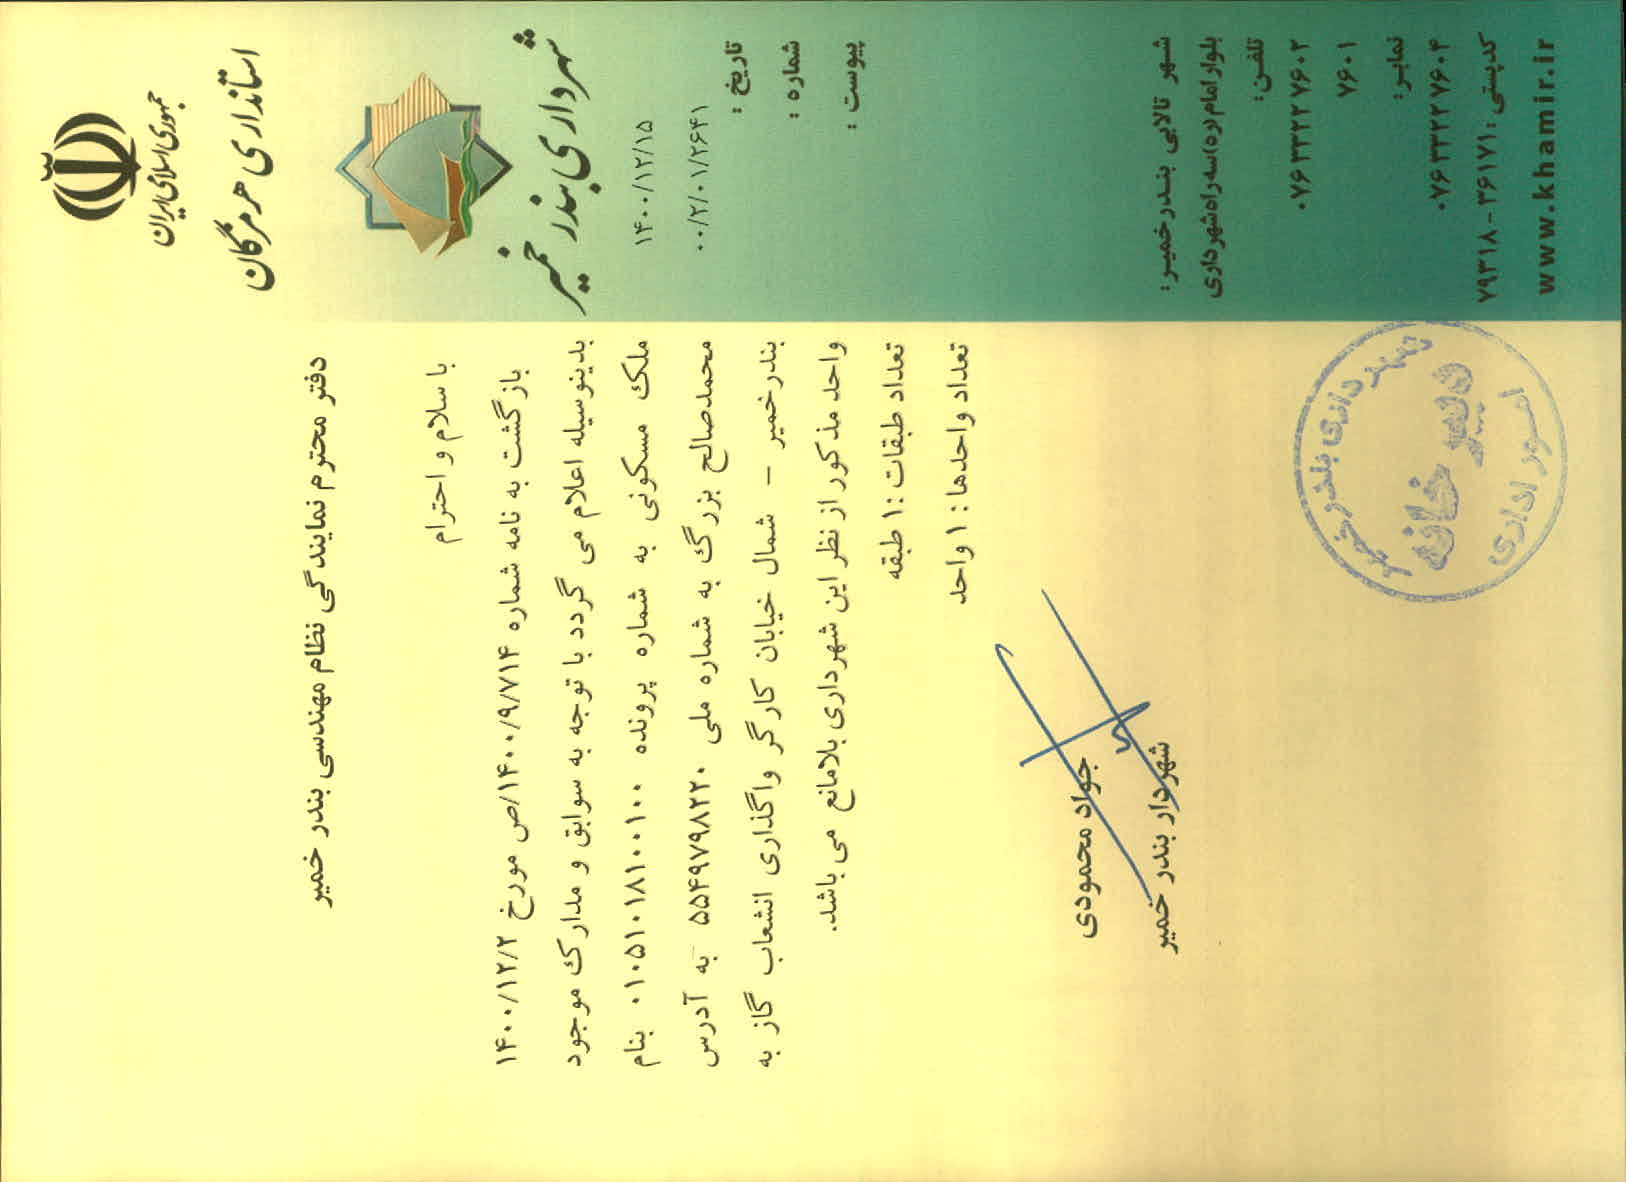 جمهوری اسلامی ایران
استانداری هرمزگان
شهرداری بندر خمیر
۱۴۰۰/۱۲/۱۵
۰۰/۲/۰۱/۲۶۴۱
تاریخ :
شماره :
پیوست :
دفتر محترم نمایندگی نظام مهندسی بندر خمیر
با سلام و احترام
بازگشت به نامه شماره ۱۴۰۰/۹/۷۱۴/ص مورخ ۱۴۰۰/۱۲/۲
بدینوسیله اعلام می گردد با توجه به سوابق و مدارک موجود
ملک مسکونی به شماره پرونده ۰۱۰۵۱۰۱۸۱۰۰۱۰۰ بنام
محمدصالح بزرگ به شماره ملی ۵۵۴۹۷۹۸۲۲۰ به آدرس
بندرخمیر - شمال خیابان کارگر واگذاری انشعاب گاز به
واحد مذکور از نظر این شهرداری بلامانع می باشد.
تعداد طبقات :۱ طبقه
تعداد واحدها : ۱ واحد
جواد محمودی
شهردار بندر خمیر
شهرداری بندر خمیر
دبیرخانه
امور اداری
شهر تالابی بندرخمیر:
بلوار امام (ره) سه راه شهرداری
تلفن:
۰۷۶۳۳۲۲۷۶۰۲
۷۶۰۱
نمابر:
۰۷۶۳۳۲۲۷۶۰۴
کدپستی : ۳۶۱۷۱ - ۷۹۳۱۸
www.khamir.ir